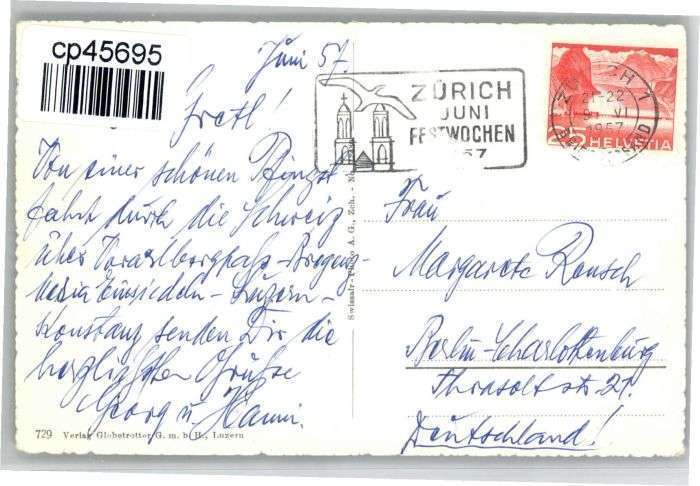 cp45695
Juni 57.
Gretl!
Von einer schönen Pfingst
fahrt durch die Schweiz
über Vorarlberg - Bregenz -
Maria Einsiedeln - Luzern -
Konstanz senden Dir die
herzlichsten Grüße
Georg u. Hanni.
729 Verlag Globetrotter G. m. b. H., Luzern
Swissair-Photo A. G., Zch. -
ZÜRICH
JUNI
FESTWOCHEN
1957
21-22
VI
1957
25 HELVETIA
Frau
Margarete Rensch
Berlin-Charlottenburg
Thrasolt str. 21.
Deutschland!